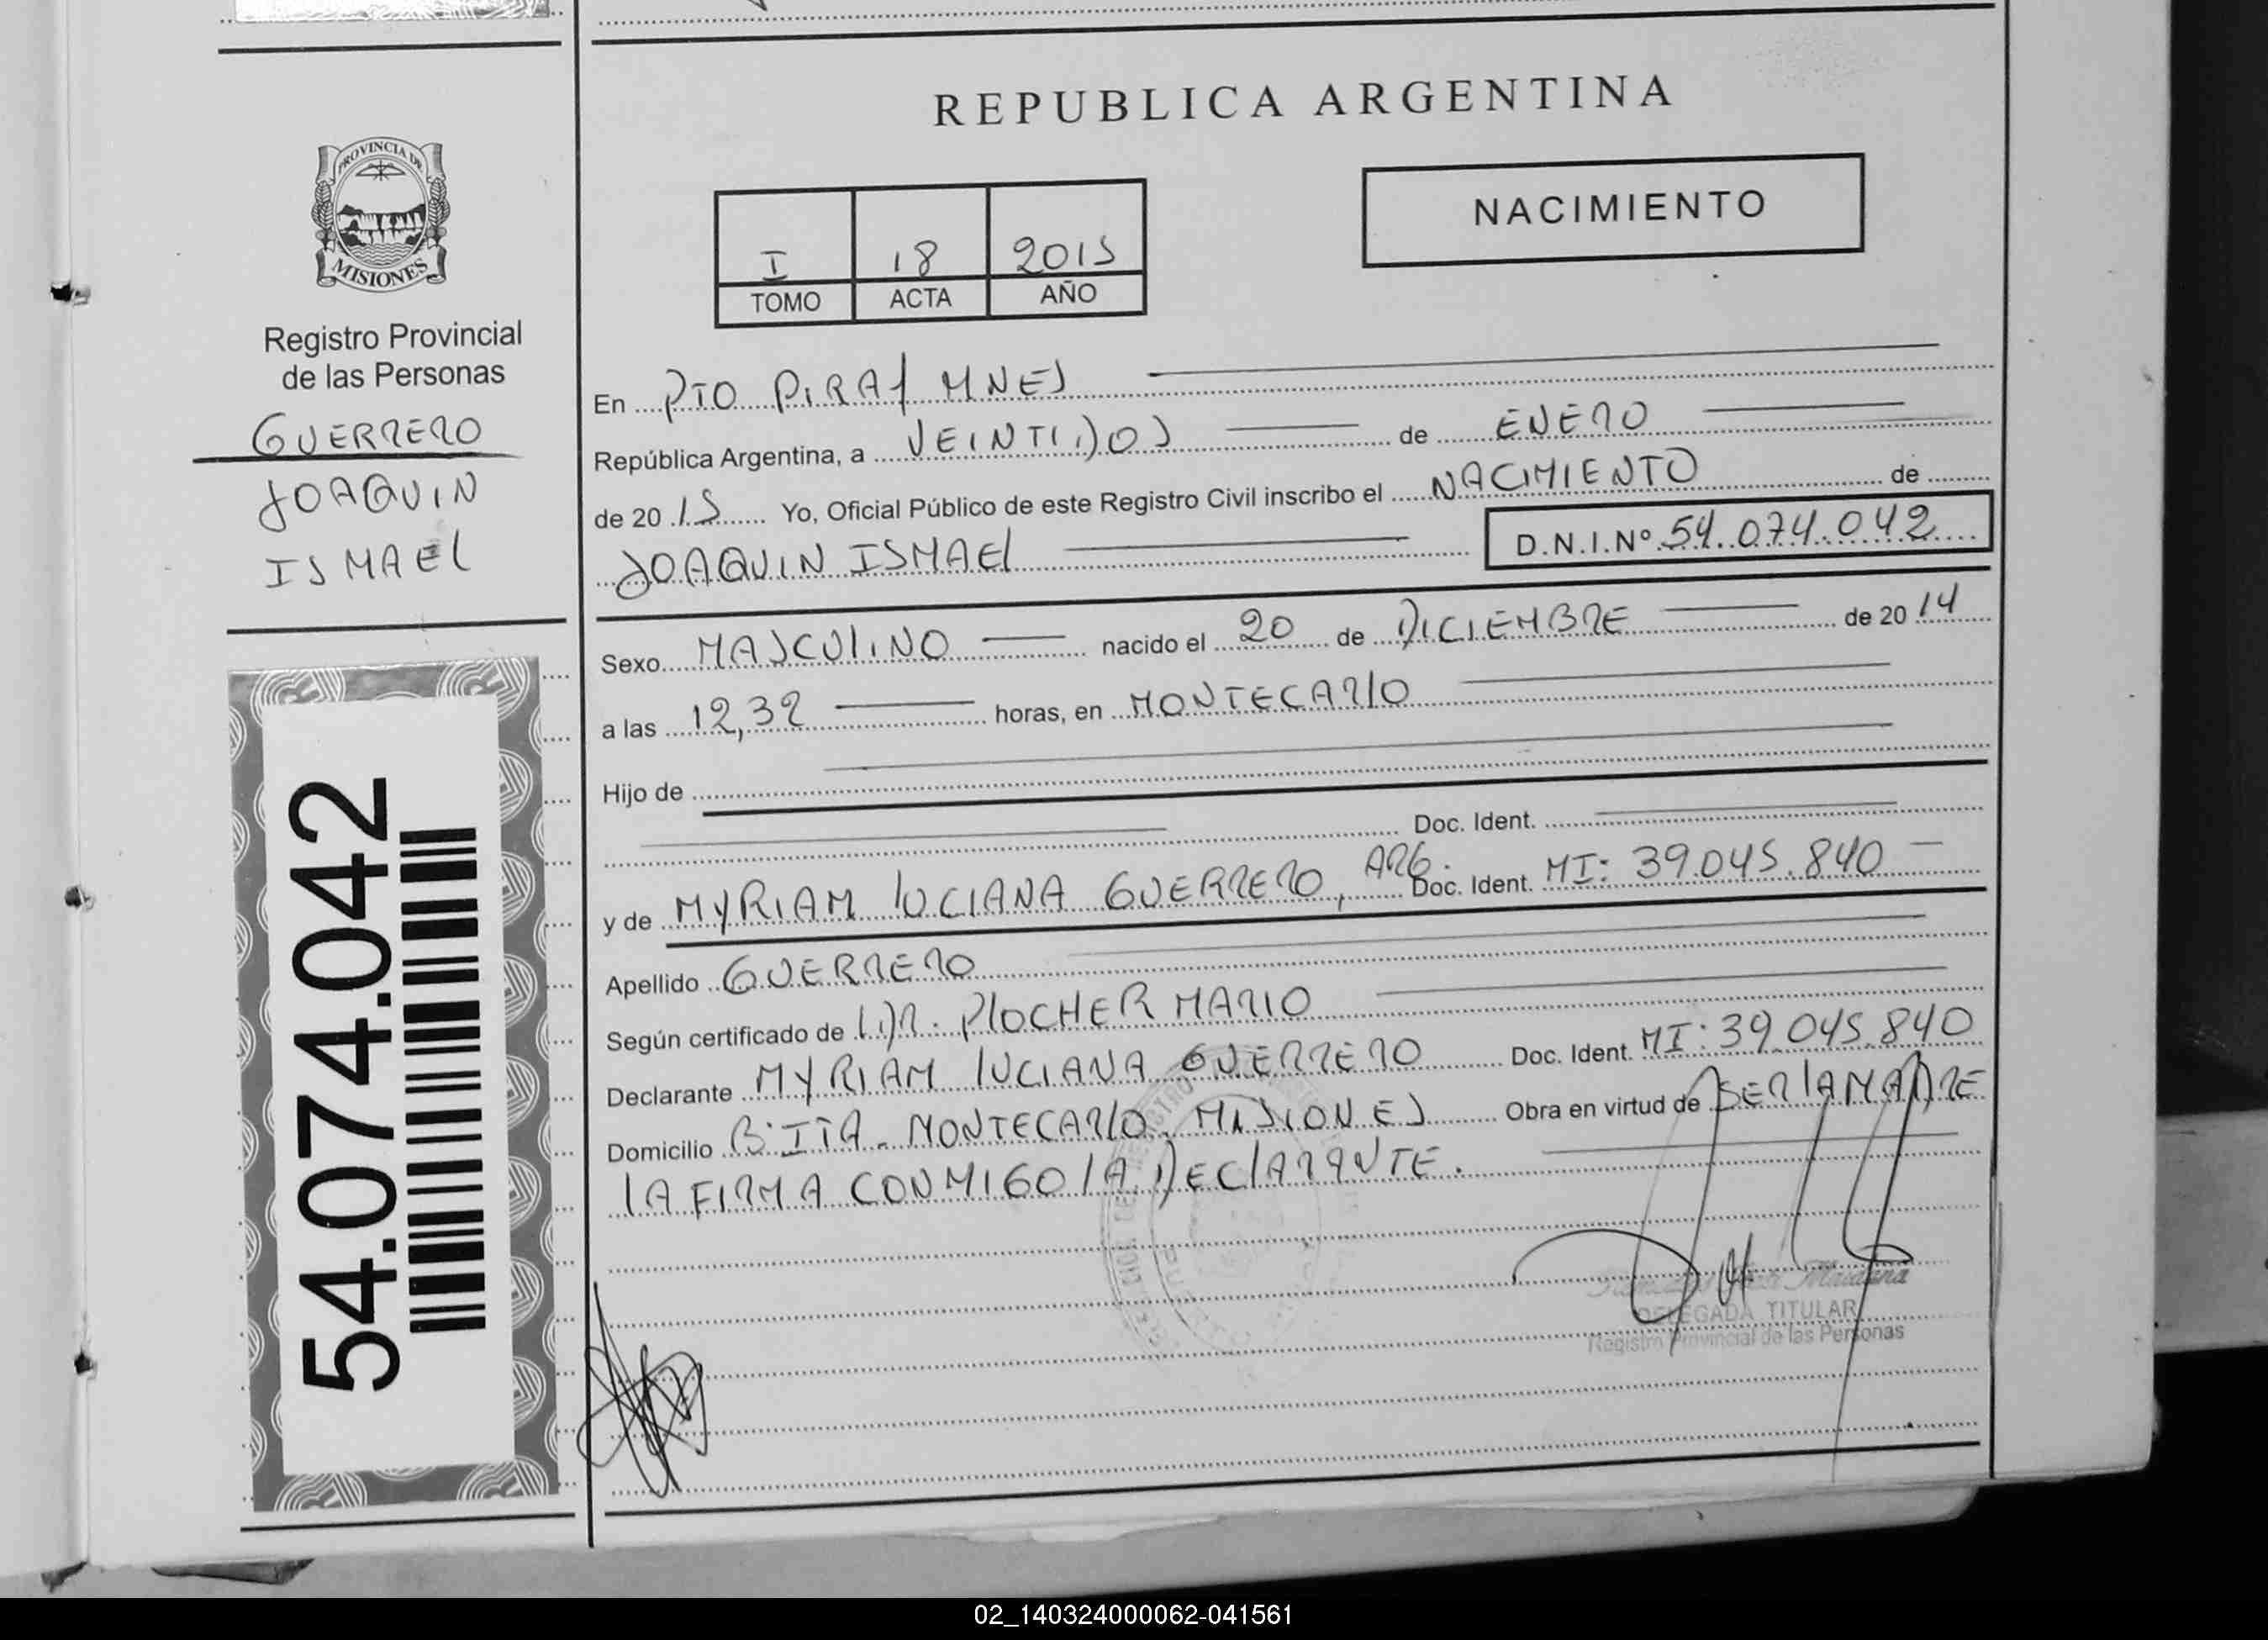 REPUBLICA ARGENTINA
PROVINCIA DE
MISIONES
Registro Provincial
de las Personas
GUERRERO
JOAQUIN
ISMAEL
54.074.042
NACIMIENTO
I 18 2015
TOMO ACTA AÑO
En PTO PIRAY MNES
República Argentina, a VEINTIDOS de ENERO
de 2015 Yo, Oficial Público de este Registro Civil inscribo el NACIMIENTO de
JOAQUIN ISMAEL D.N.I.Nº 54.074.042
Sexo MASCULINO nacido el 20 de DICIEMBRE de 2014
a las 12,32 horas, en MONTECARLO
Hijo de
Doc. Ident.
y de MYRIAM LUCIANA GUERRERO, ARG. Doc. Ident. MI: 39.045.840
Apellido GUERRERO
Según certificado de DR. PLOCHER MARIO
Declarante MYRIAM LUCIANA GUERRERO Doc. Ident. MI: 39.045.840
Domicilio Bº ITA - MONTECARLO, MISIONES Obra en virtud de SER LA MADRE
LA FIRMA CONMIGO LA DECLARANTE.
DELEGADA TITULAR
Registro Provincial de las Personas
02_140324000062-041561